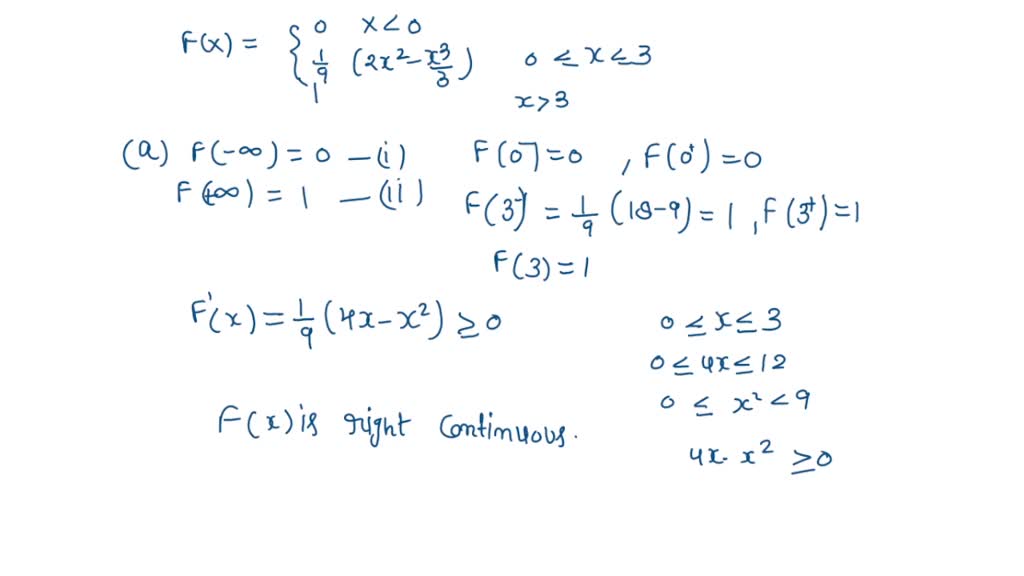 F(x) = { 0 x<0
1/9 (2x² - x³/3) 0 ≤ x ≤ 3
1 x>3
(a) F(-∞) = 0 —(i) F(0⁻)=0 , F(0⁺)=0
F(+∞) = 1 —(ii) F(3⁻) = 1/9 (18-9) = 1 , F(3⁺)=1
F(3)=1
F'(x) = 1/9 (4x-x²) ≥ 0 0 ≤ x ≤ 3
0 ≤ 4x ≤ 12
0 ≤ x² < 9
F(x) is right continuous.
4x - x² ≥ 0